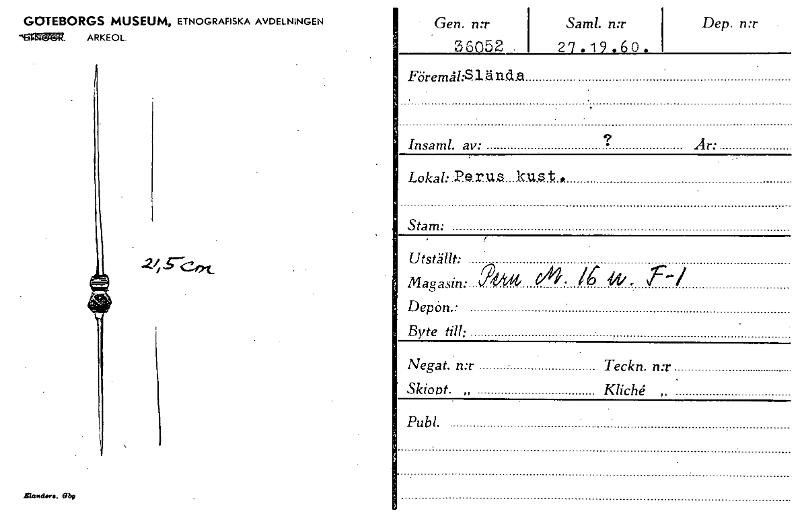 GÖTEBORGS MUSEUM, ETNOGRAFISKA AVDELNINGEN
ARKEOL.
21,5 cm
Elanders, Gbg
Gen. n:r Saml. n:r Dep. n:r
36052 27.19.60.
Föremål: Slända
Insaml. av: ? År:
Lokal: Perus kust.
Stam:
Utställt:
Magasin: Peru M. 16 u. F-1
Depon.:
Byte till:
Negat. n:r Teckn. n:r
Skiopt. „ Kliché „
Publ.